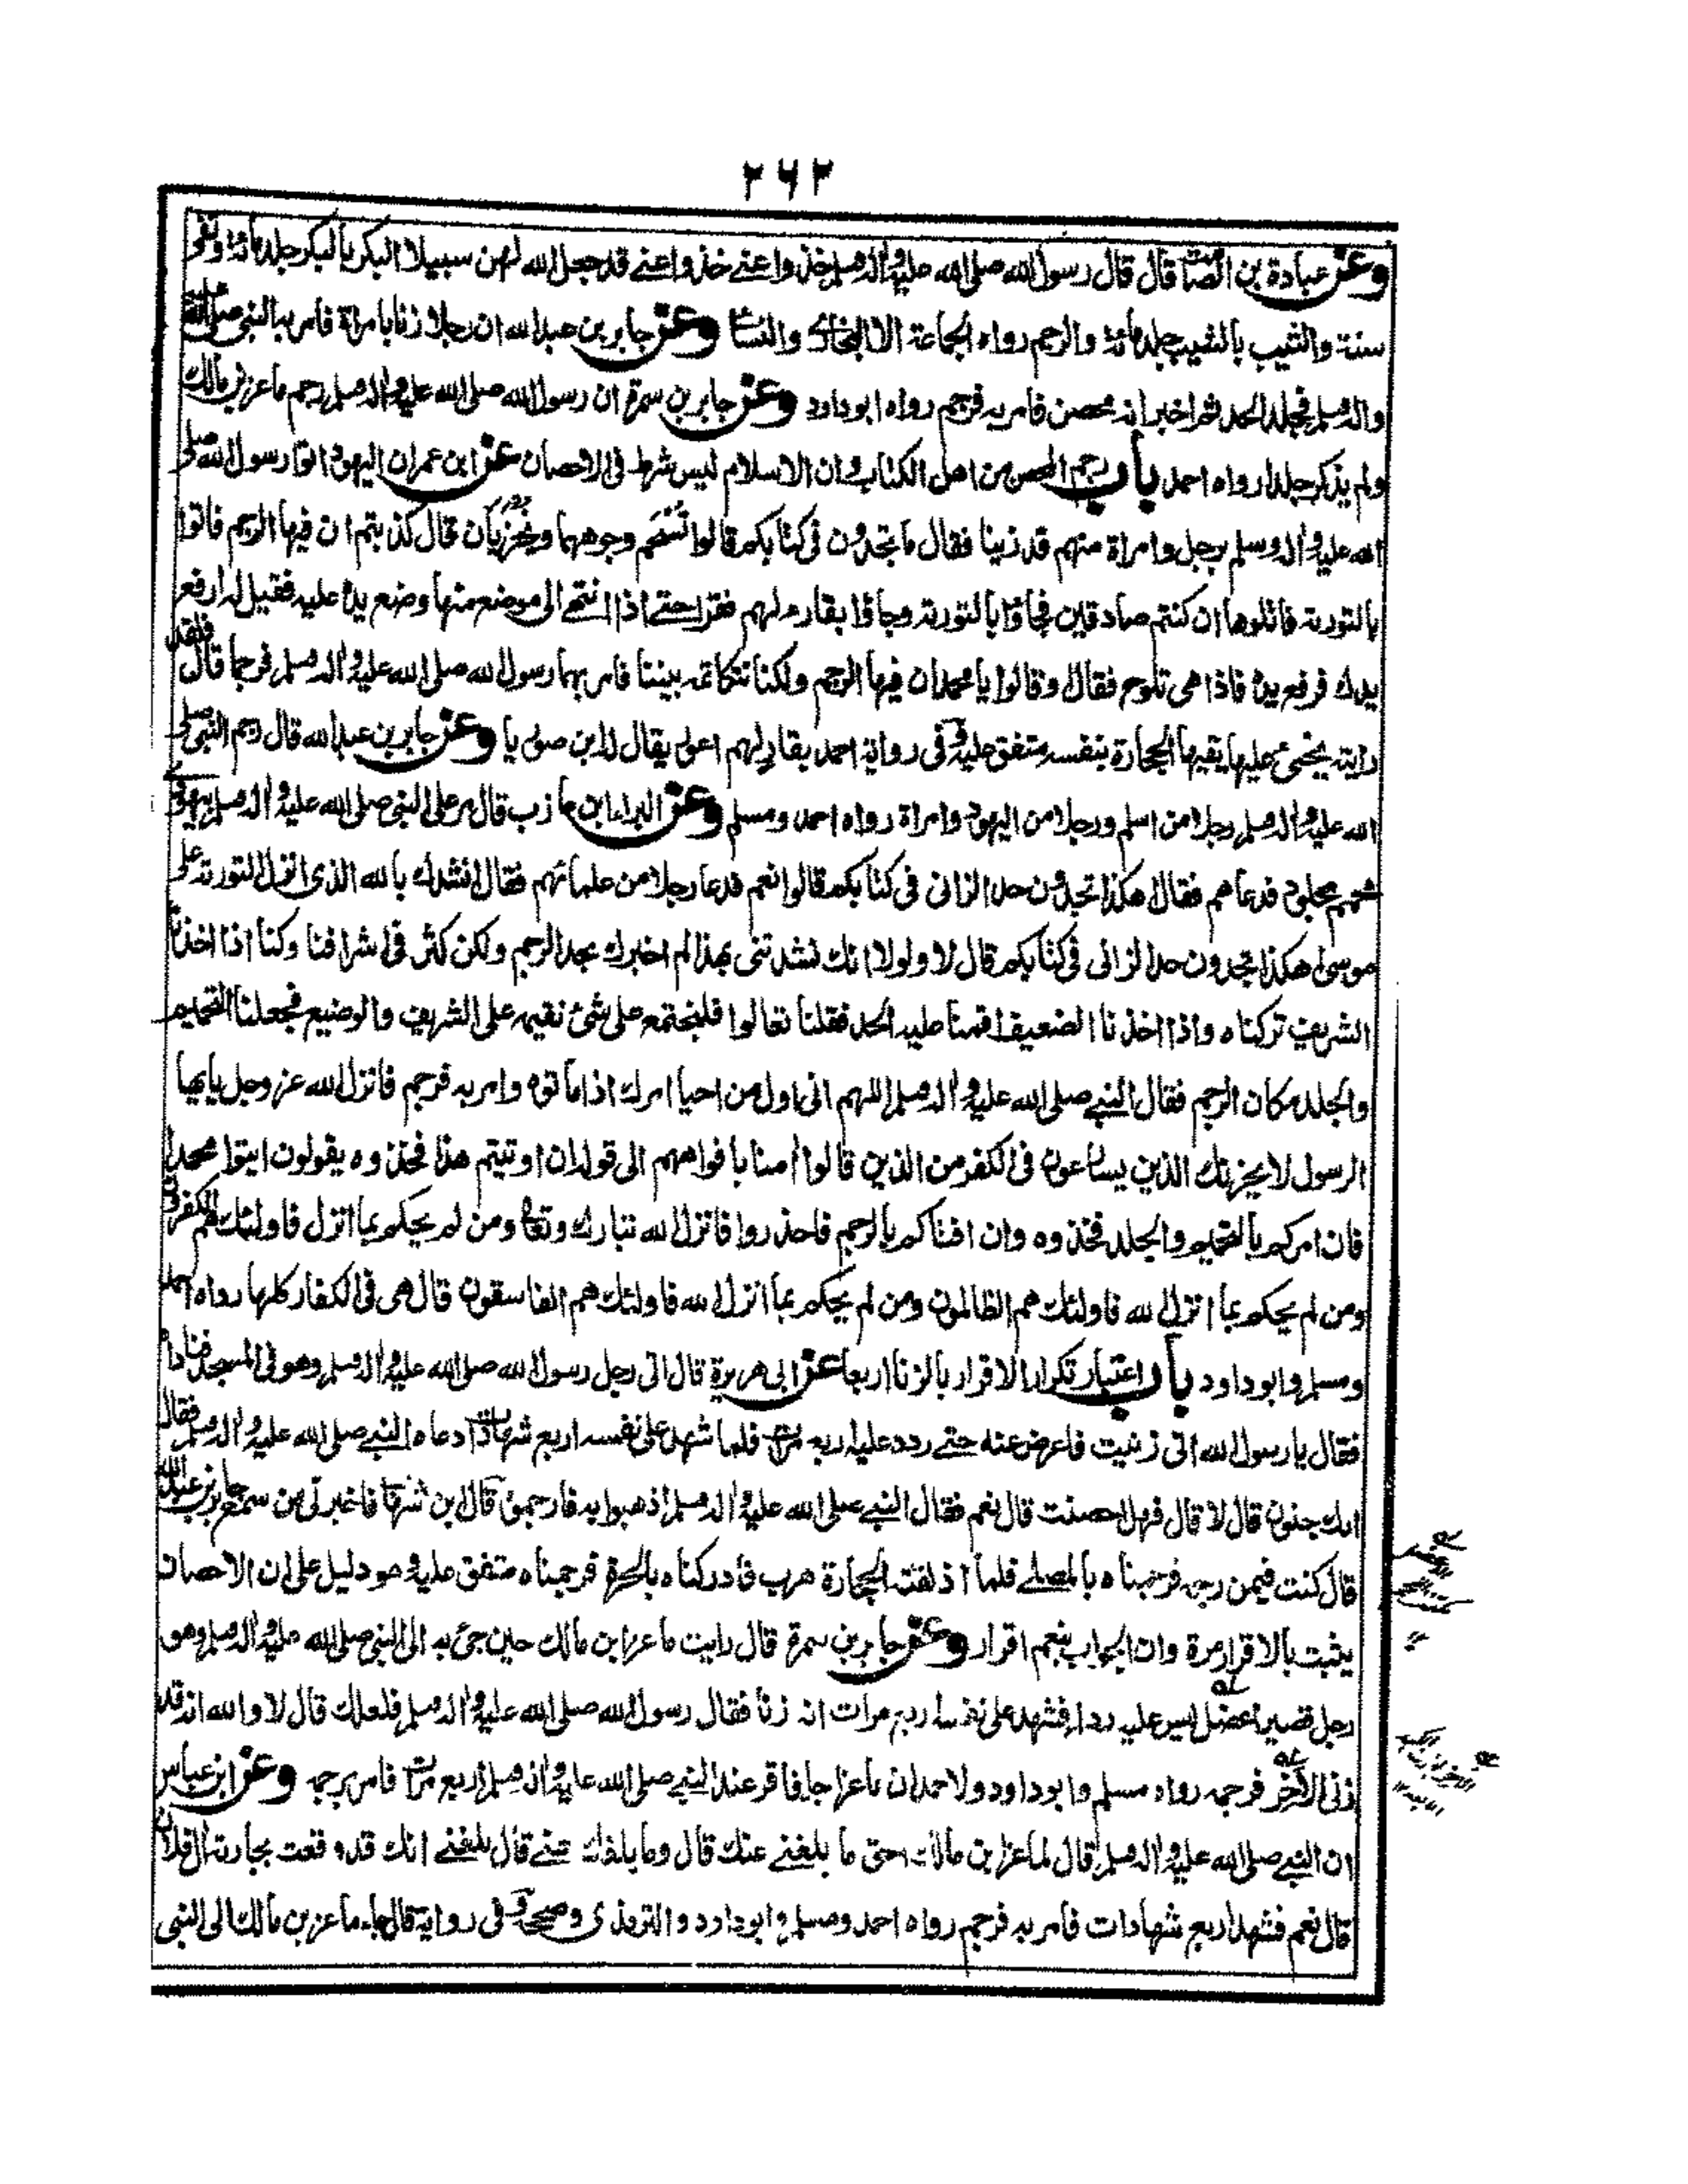 ٢٦٢
وعن عبادة بن الصامت قال قال رسول الله صلى الله عليه واله وسلم خذواعنے خذواعنے قد جعل الله لهن سبيلا البكر بالبكر جلد مائة ونفى
سنة والثيب بالثيب جلد مائة والرجم رواه الجماعة الا البخارى والنسائى وعن جابر بن عبدالله ان رجلا زنا بامراة فامر به النبى صلى الله عليه
واله وسلم فجلد الحد ثم اخبر انه محصن فامر به فرجم رواه ابوداود وعن جابر بن سمرة ان رسول الله صلى الله عليه واله وسلم رجم ماعز بن مالك
ولم يذكر جلدا رواه احمد باب رجم المحصن من اهل الكتاب وان الاسلام ليس شرط فى الاحصان عن ابن عمر ان اليهود اتوا رسول الله صلى
الله عليه واله وسلم برجل وامراة منهم قد زنيا فقال ما تجدون فى كتابكم قالوا تسخم وجوههما ويخزيان قال كذبتم ان فيها الرجم فاتوا
بالتورية فاتلوها ان كنتم صادقين فجاؤا بالتورية وجاؤا بقارء لهم فقرا حتے اذا انتهى الى موضع منها وضع يده عليه فقيل له ارفع
يدك فرفع يده فاذا هى تلوح فقال وقالوا يا محمد ان فيها الرجم ولكنا نتكاتمه بيننا فامر بهما رسول الله صلى الله عليه واله وسلم فرجما قال فلقد
رايته يجنى عليها يقيها الحجارة بنفسه متفق عليه وفى رواية احمد بقارء لهم اعور يقال له ابن صوريا وعن جابر بن عبدالله قال رجم النبى صلى
الله عليه واله وسلم رجلا من اسلم ورجلا من اليهود وامراة رواه احمد ومسلم وعن البراء بن عازب قال مر على النبى صلى الله عليه واله وسلم بيهودى
محمم مجلود فدعاهم فقال هكذا تجدون حد الزانى فى كتابكم قالوا نعم فدعا رجلا من علمائهم فقال انشدك بالله الذى انزل التورية على
موسى هكذا تجدون حد الزانى فى كتابكم قال لا ولولا انك نشدتنى بهذا لم اخبرك بحد الرجم ولكن كثر فى اشرافنا وكنا اذا اخذنا
الشريف تركناه واذا اخذنا الضعيف اقمنا عليه الحد فقلنا تعالوا فلنجتمع على شئ نقيمه على الشريف والوضيع فجعلنا التحميم
والجلد مكان الرجم فقال النبے صلى الله عليه واله وسلم اللهم انى اول من احيا امرك اذ اماتوه وامر به فرجم فانزل الله عز وجل يايها
الرسول لا يحزنك الذين يسارعون فى الكفر من الذين قالوا امنا بافواههم الى قوله ان اوتيتم هذا فخذوه يقولون ايتوا محمدا
فان امركم بالتحميم والجلد فخذوه وان افتاكم بالرجم فاحذروا فانزل الله تبارك وتعالى ومن لم يحكم بما انزل فاولئك هم الكفرون
ومن لم يحكم بما انزل الله فاولئك هم الظالمون ومن لم يحكم بما انزل الله فاولئك هم الفاسقون قال هى فى الكفار كلها رواه احمد
ومسلم وابوداود باب اعتبار تكرار الاقرار بالزنا اربعا عن ابى هريرة قال اتى رجل رسول الله صلى الله عليه واله وسلم وهو فى المسجد فناداه
فقال يا رسول الله انى زنيت فاعرض عنه حتے ردد عليه اربع مرات فلما شهد على نفسه اربع شهادات دعاه النبے صلى الله عليه واله وسلم فقال
ابك جنون قال لا قال فهل احصنت قال نعم فقال النبے صلى الله عليه واله وسلم اذهبوا به فارجموه قال ابن شهاب فاخبرنى من سمع جابر بن عبدالله
قال كنت فيمن رجمه فرجمناه بالمصلے فلما اذلقته الحجارة هرب فادركناه بالحرة فرجمناه متفق عليه وهو دليل على ان الاحصان
يثبت بالاقرار مرة وان الجواب بنعم اقرار وعن جابر بن سمرة قال رايت ماعز بن مالك حين جئ به الى النبى صلى الله عليه واله وسلم وهو
رجل قصير اعضل ليس عليه رداء فشهد على نفسه اربع مرات انه زنا فقال رسول الله صلى الله عليه واله وسلم فلعلك قال لا والله انه قد
زنى الاخر فرجمه رواه مسلم وابوداود ولاحمد ان ماعزا جاء فاقر عند النبے صلى الله عليه واله وسلم اربع مرات فامر برجمه وعن ابن عباس
ان النبے صلى الله عليه واله وسلم قال لماعز بن مالك احق ما بلغنے عنك قال وما بلغك عنے قال بلغنے انك قد وقعت بجارية ال فلان
قال نعم فشهد اربع شهادات فامر به فرجم رواه احمد ومسلم وابوداود والترمذى وصححه وفى رواية قال جاء ماعز بن مالك الى النبى